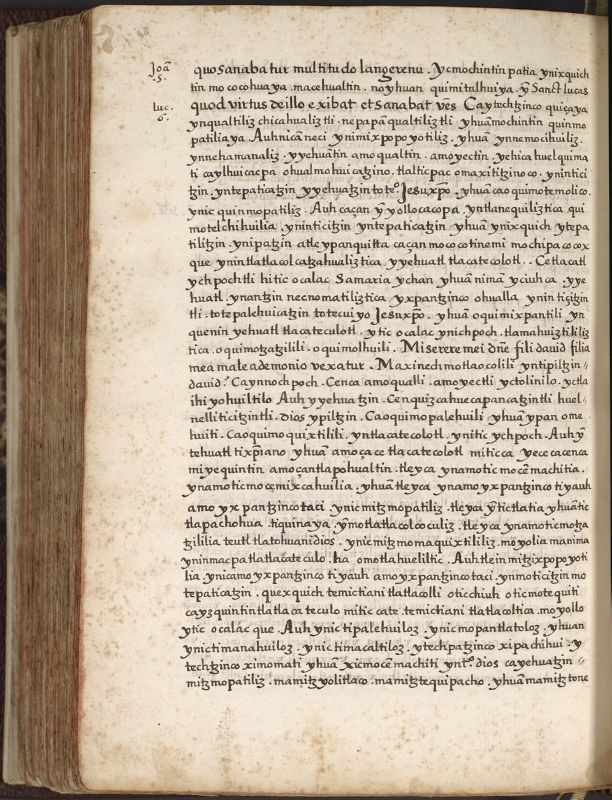 Joā .5.
quo sanaba tur multitu do langerenu . ycmochintin patia ynixquich
tin mo cocohuaya . macehualtin . no yhuan quimitalhuiya . ỹ Sanct lucas
luc. 6.
quod virtus de illo exibat et sanabat oēs Caytechtzinco quiçaya
ynqualtiliz chicahualiztli . nepapā qualtiliztli yhuā mochintin quinmo
patiliaya . Auhnicā neci ynimixpopoyotiliz . yhuā ynnemocihuiliz .
ynnehamanaliz . yyehuātin amo qualtin . amo yectin . yehica huel quima
ti caylhuicacpa ohualmohuicatzino . tlalticpac omaxititzinco . ynintici
tzin . yntepaticatzin yyehuatzin toteº. Jesu xp̄o . yhuā cao quimotemolico .
ynic quinmopatiliz . Auh caçan ỹ yollocacopa . yntlanequiliztica . qui
motelchihuilia . ynintici tzin . yntepaticatzin . yhuā ynixquich ytepa
tilitzin . ynipatzin atle ypanquitta caçan moco cotinemi mochipa cocox
que . ynintlatlacolcatzahualiztica . yyehuatl tlacatecolotl . . Cetlacatl
ychpochtli hitic ocalac Samaria ychan . yhuā nimā yciuhca . yye
huatl . ynantzin necnomatiliztica . yxpantzinco ohualla . ynintiçitzin
tli . totepalehuicatzin totecuiyo Jesuxp̄o . yhuā oquimixpantili yn
quenin yehuatl tlacateculotl . ytic ocalac ynichpoch . tlamahuiztililiz
tica . oquimotzatzilili . oquimolhuili . Miserere mei dn̄e fili david filia
mea male ademonio vexatur . Maxinechmotlaocolili yntipiltzin
david? Caynnochpoch . Cenca amo qualli . amo yectli yctolinilo . yctla
ihiyohuiltilo Auh yyehuatzin . Cenquizcahuecapancatzintli huel
nelliticitzintli . dios ypiltzin . Caoquimopalehuili yhuā ypan ome
huiti . Caoquimoquixtilili . yntlacatecolotl . ynitic ychpoch . Auh ỹ
tehuatl tixp̄iano yhuā amo ça ce tlacatecolotl mitic ca yece cacenca
miyequintin amo çantlapohualtin . tleyca ynamotic mocēmachitia .
ynamoticmocemixcahuilia . yhuā tleyca ynamo yxpantzinco tiyauh
amo yxpantzinco taci . ynic mitzmopatiliz . tleyca ỹtictlatia yhuātic
tlapachohua . tiquinaya . ỹmotlatlacolcoculiz . tleyca ynamoticmotza
tzililia teutl tlatohuani dios . ynicmitzmomaquixtililiz . moyolia manima
yninmacpa tlatlacateculo . ha omotlahueliltic . Auh tlein mitzixpopoyoti
lia . ynicamo yxpantzinco tiyauh amo yxpantzinco taci . ynmoticitzin mo
tepaticatzin . quexquich temictiani tlatlacolli oticchiuh oticmotequiti
cayzquintin tlatlacateculo mitic cate . temictiani tlatlacoltica . moyollo
ytic ocalacque . Auh ynic tipalehuiloz . ynic mopantlatoloz . yhuan
ynic timanahuiloz . ynic timacaltiloz . ytechpatzinco xipachihui . y
techtzinco ximomati yhuā xicmocēmachiti yntº. dios cayehuatzin
mitzmopatiliz . mamitzyolitlaco . mamitztequipacho . yhuā mamitztone